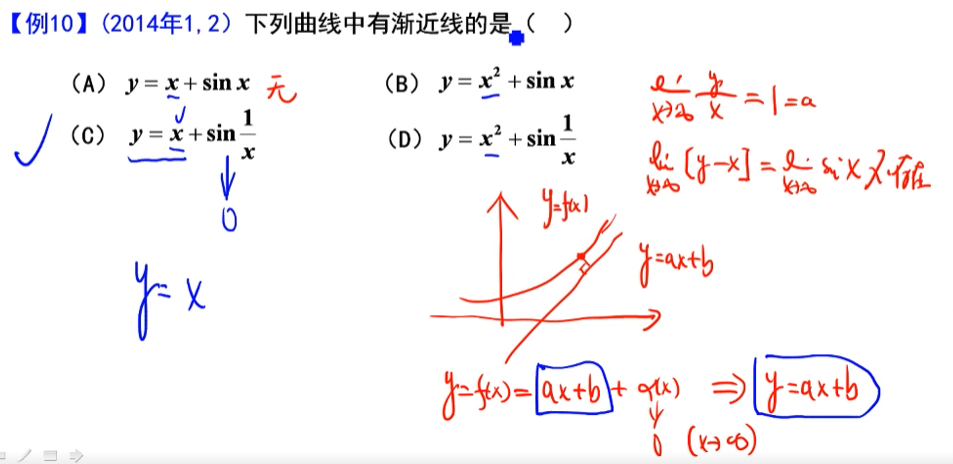 【例10】(2014年1,2) 下列曲线中有渐近线的是( )
(A) y = x + sin x 无
(B) y = x² + sin x
(C) y = x + sin 1/x
(D) y = x² + sin 1/x
0
y = x
lim x→∞ y/x = 1 = a
lim x→∞ [y-x] = lim x→∞ sin x 不存在
y=f(x)
y=ax+b
y=f(x)= ax+b + α(x) ⇒ y=ax+b
0 (x→∞)